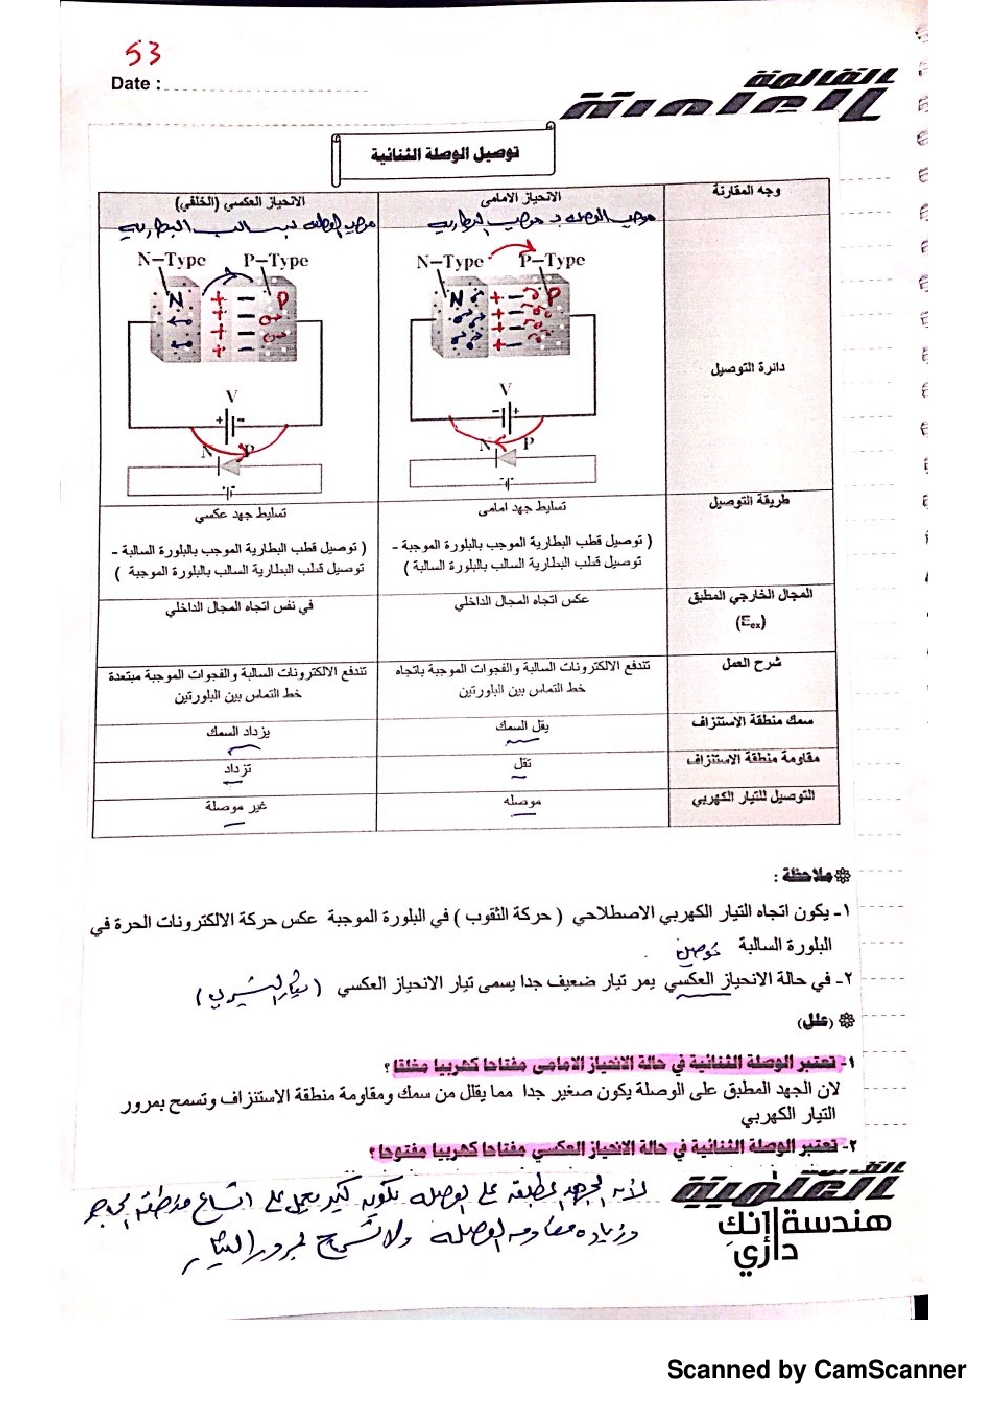 53
Date :
القائمة
العلمية
توصيل الوصلة الثنائية
وجه المقارنة
الانحياز الامامى
الانحياز العكسي (الخلقي)
موجب الوصلة بـ موجب البطارية
موجب الوصلة بسالب البطارية
دائرة التوصيل
N-Type P-Type
N P
+ −
+ −
+ −
+ −
V
− +
N P
N-Type P-Type
N P
+ −
+ −
+ −
+ −
V
+ −
N P
طريقة التوصيل
تسليط جهد امامى
( توصيل قطب البطارية الموجب بالبلورة الموجبة -
توصيل قطب البطارية السالب بالبلورة السالبة )
تسليط جهد عكسي
( توصيل قطب البطارية الموجب بالبلورة السالبة -
توصيل قطب البطارية السالب بالبلورة الموجبة )
المجال الخارجي المطبق
(Eex)
عكس اتجاه المجال الداخلي
في نفس اتجاه المجال الداخلي
شرح العمل
تتدفع الالكترونات السالبة والفجوات الموجبة باتجاه
خط التماس بين البلورتين
تتدفع الالكترونات السالبة والفجوات الموجبة مبتعدة
خط التماس بين البلورتين
سمك منطقة الإستنزاف
يقل السمك
يزداد السمك
مقاومة منطقة الاستنزاف
تقل
تزداد
التوصيل للتيار الكهربي
موصله
غير موصلة
ملاحظة :
١- يكون اتجاه التيار الكهربي الاصطلاحي ( حركة الثقوب ) في البلورة الموجبة عكس حركة الالكترونات الحرة في
البلورة السالبة
٢- في حالة الانحياز العكسي يمر تيار ضعيف جدا يسمى تيار الانحياز العكسي (تيار التسريب)
(علل)
١- تعتبر الوصلة الثنائية في حالة الانحياز الامامى مفتاحا كهربيا مغلقا ؟
لان الجهد المطبق على الوصلة يكون صغير جدا مما يقلل من سمك ومقاومة منطقة الاستنزاف وتسمح بمرور
التيار الكهربي
٢- تعتبر الوصلة الثنائية في حالة الانحياز العكسي مفتاحا كهربيا مفتوحا ؟
لأنه الجهد المطبق على الوصلة يكون كبير يعمل على اتساع منطقة
وزيادة مقاومة الوصلة ولا تسمح لمرور التيار
العلمية
هندسة إنك
داري
Scanned by CamScanner